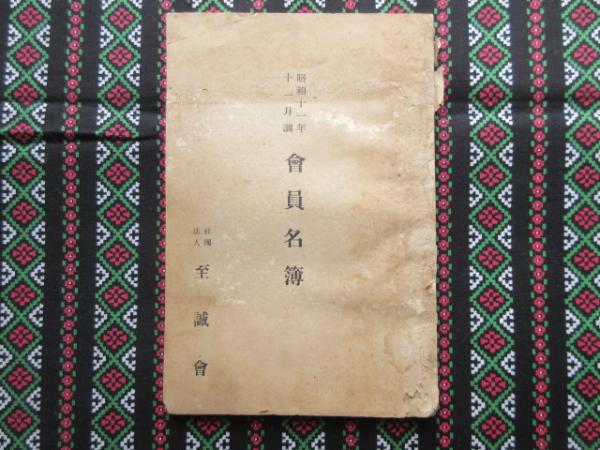 昭和十一年
十一月調
會員名簿
社團
法人
至誠會